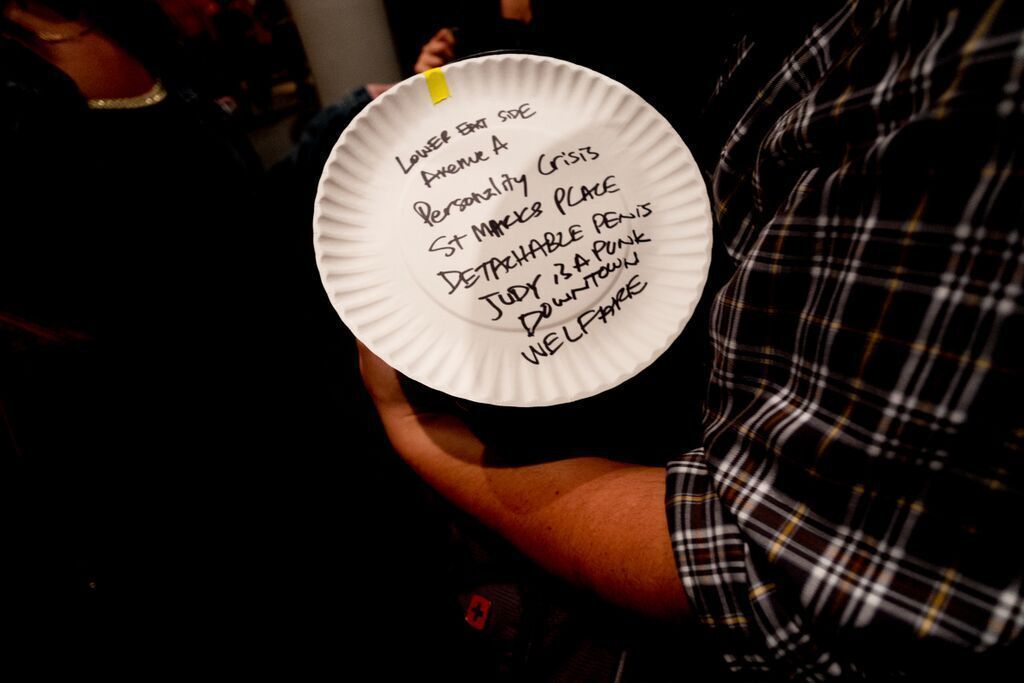 LOWER EAST SIDE
Avenue A
Personality Crisis
St MARKS PLACE
DETACHABLE PENIS
JUDY IS A PUNK
DOWNTOWN
WELFARE